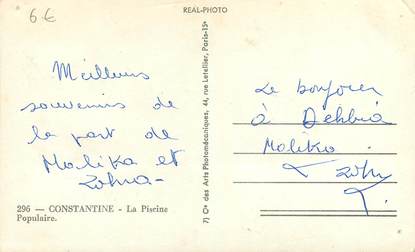 6€
REAL-PHOTO
Meilleurs
souvenirs de
la part de
Malika et
Zohra-
296 — CONSTANTINE - La Piscine
Populaire.
7) Cie des Arts Photomécaniques, 44, rue Letellier, Paris-15e
Le bonjour
à Dehbia
Malika
Zohra